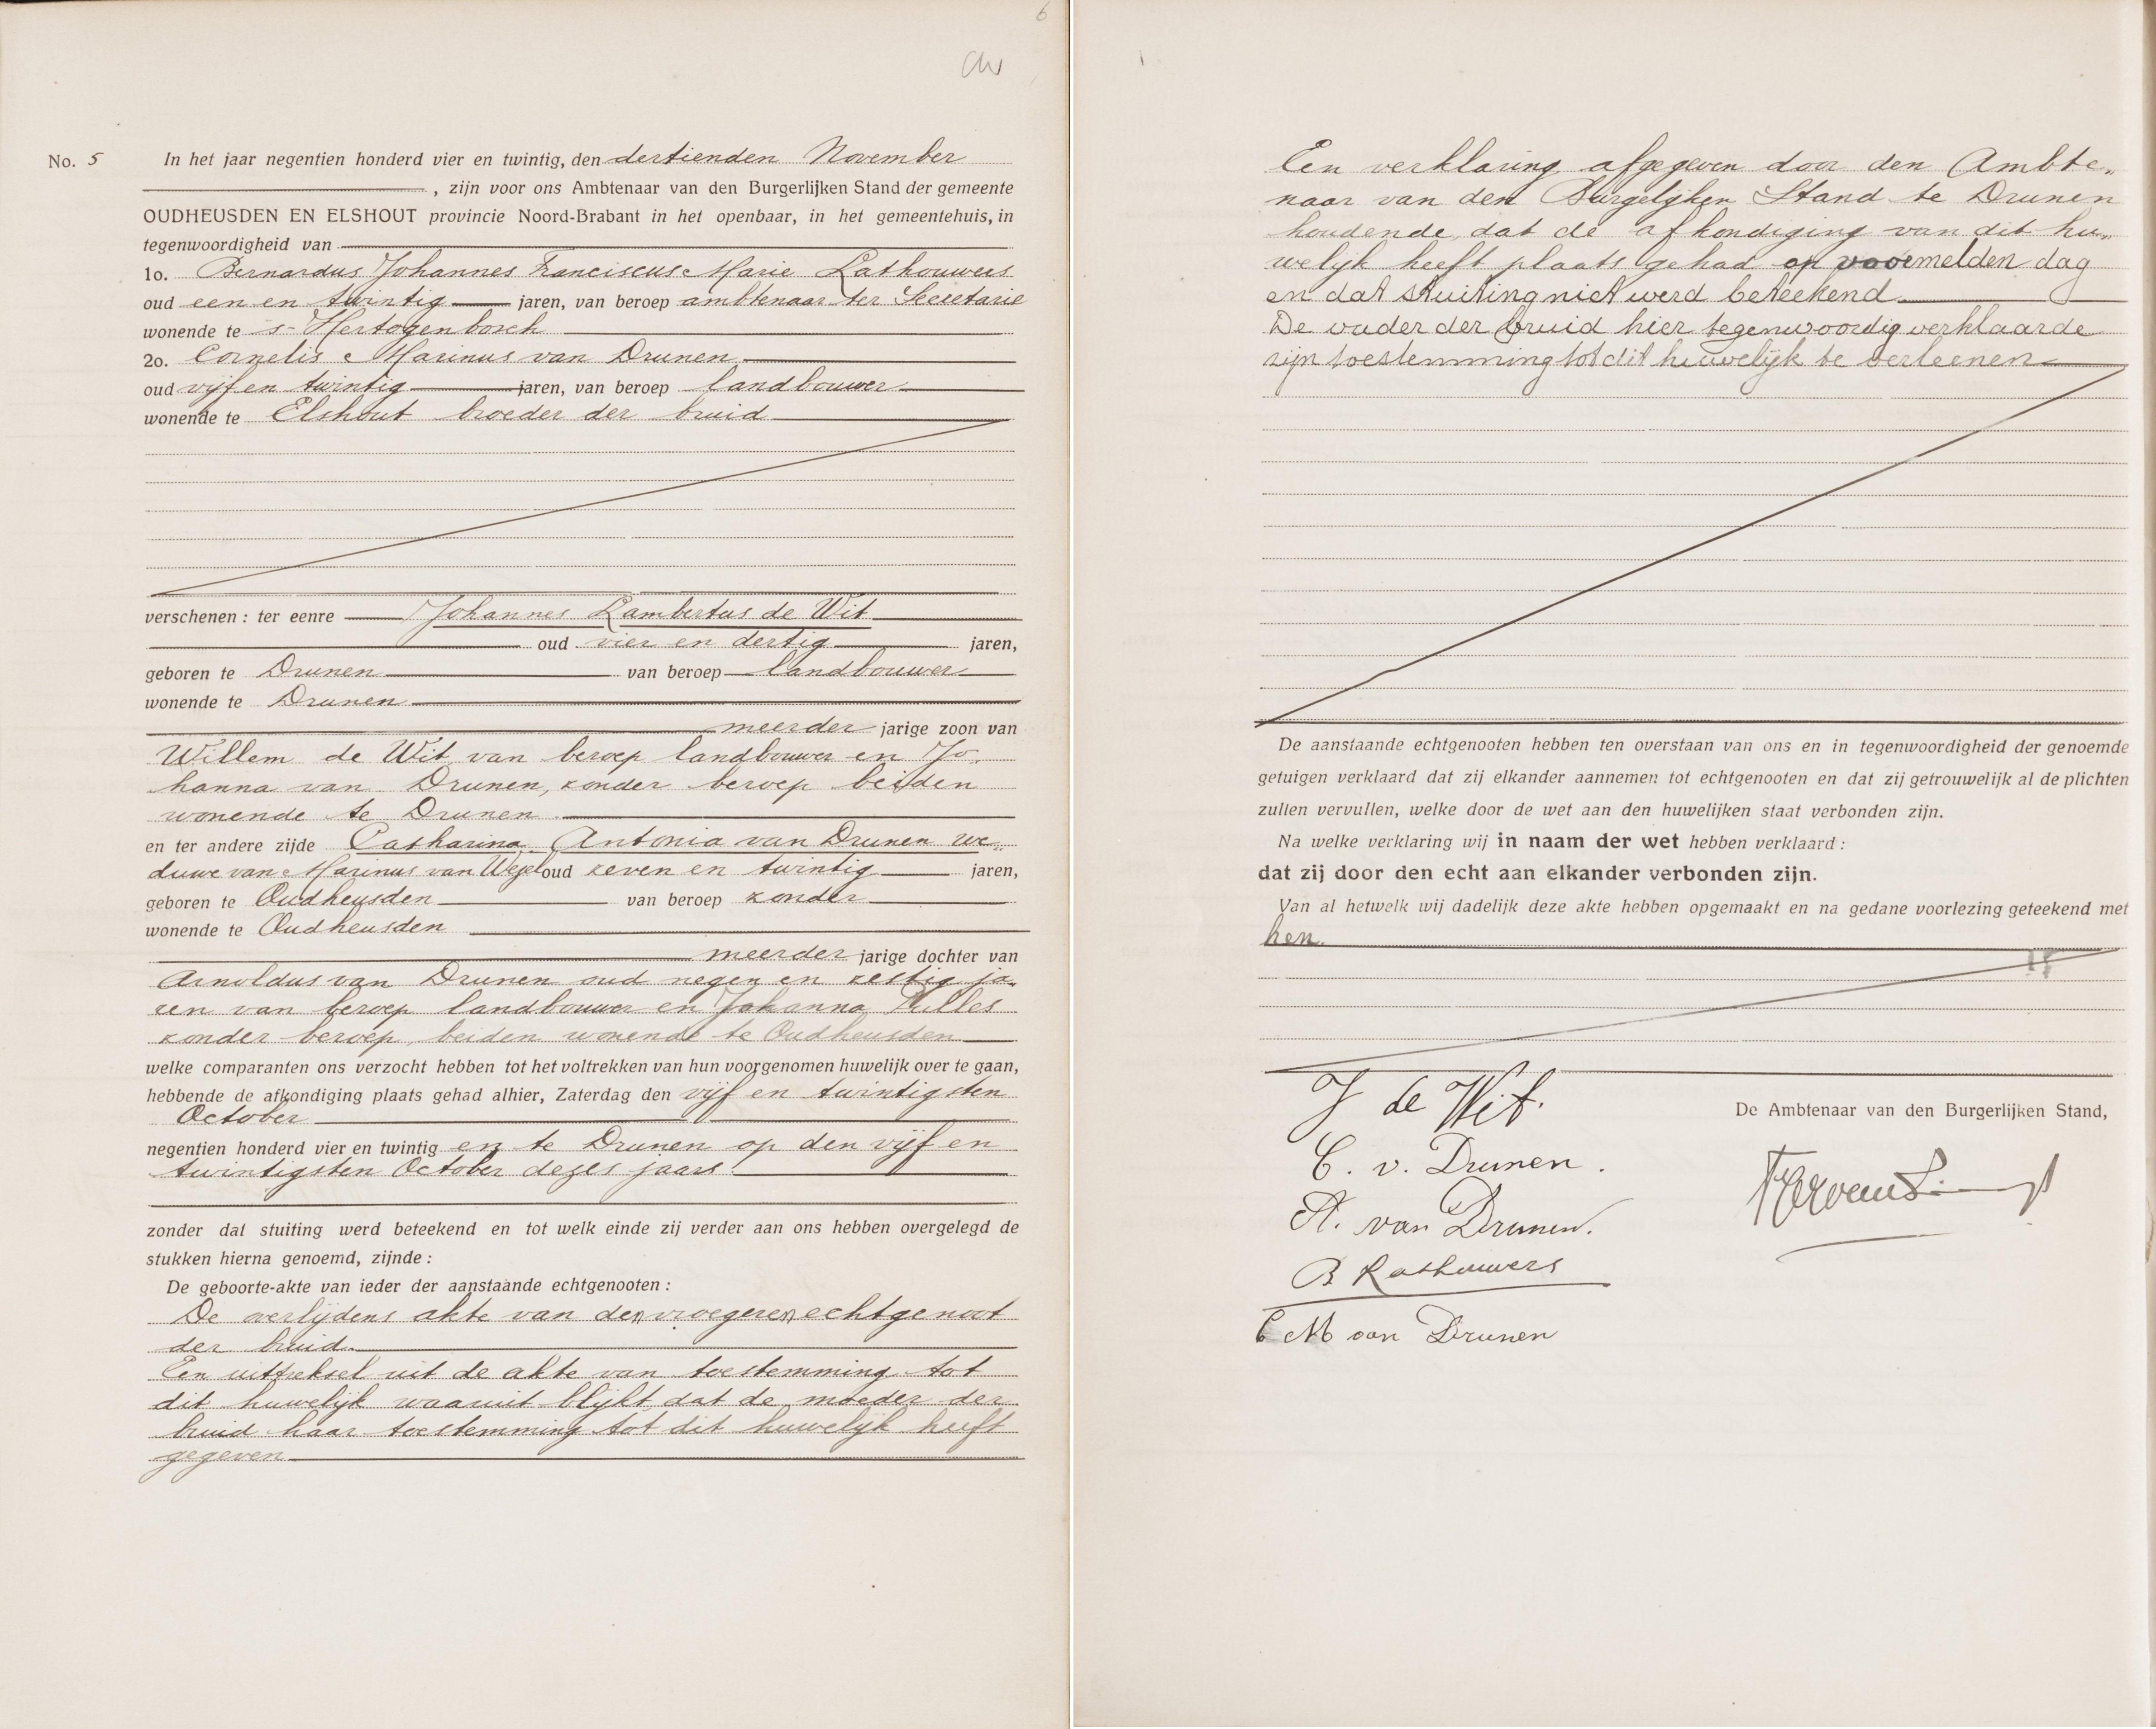 6
No. 5 In het jaar negentien honderd vier en twintig, den dertienden November
, zijn voor ons Ambtenaar van den Burgerlijken Stand der gemeente
OUDHEUSDEN EN ELSHOUT provincie Noord-Brabant in het openbaar, in het gemeentehuis, in
tegenwoordigheid van
1o. Bernardus Johannes Franciscus Marie Lathouwers
oud een en twintig jaren, van beroep ambtenaar ter Secretarie
wonende te s-Hertogenbosch
2o. Cornelis Marinus van Drunen
oud vijf en twintig jaren, van beroep landbouwer
wonende te Elshout broeder der bruid
verschenen: ter eenre Johannes Lambertus de Wit
oud vier en dertig jaren,
geboren te Drunen van beroep landbouwer
wonende te Drunen
meerder jarige zoon van
Willem de Wit van beroep landbouwer en Jo-
hanna van Drunen, zonder beroep beiden
wonende te Drunen
en ter andere zijde Catharina Antonia van Drunen we„
duwe van Marinus van Wezel oud zeven en twintig jaren,
geboren te Oudheusden van beroep zonder
wonende te Oudheusden
meerder jarige dochter van
Arnoldus van Drunen oud negen en zestig ja„
ren van beroep landbouwer en Johanna Pulles
zonder beroep, beiden wonende te Oudheusden
welke comparanten ons verzocht hebben tot het voltrekken van hun voorgenomen huwelijk over te gaan,
hebbende de afkondiging plaats gehad alhier, Zaterdag den vijf en twintigsten
October
negentien honderd vier en twintig en te Drunen op den vijf en
twintigsten October dezes jaars
zonder dat stuiting werd beteekend en tot welk einde zij verder aan ons hebben overgelegd de
stukken hierna genoemd, zijnde:
De geboorte-akte van ieder der aanstaande echtgenooten:
De overlijdens akte van den vroegeren echtgenoot
der bruid
Een uittreksel uit de akte van toestemming tot
dit huwelijk waaruit blijkt dat de moeder der
bruid haar toestemming tot dit huwelijk heeft
gegeven
Een verklaring afgegeven door den Ambte„
naar van den Burgelijken Stand te Drunen
houdende, dat de afkondiging van dit hu„
welijk heeft plaats gehad op voormelden dag
en dat stuiting niet werd beteekend
De vader der bruid hier tegenwoordig verklaarde
zijn toestemming tot dit huwelijk te verleenen
De aanstaande echtgenooten hebben ten overstaan van ons en in tegenwoordigheid der genoemde
getuigen verklaard dat zij elkander aannemen tot echtgenooten en dat zij getrouwelijk al de plichten
zullen vervullen, welke door de wet aan den huwelijken staat verbonden zijn.
Na welke verklaring wij in naam der wet hebben verklaard:
dat zij door den echt aan elkander verbonden zijn.
Van al hetwelk wij dadelijk deze akte hebben opgemaakt en na gedane voorlezing geteekend met
hen.
J de Wit.
De Ambtenaar van den Burgerlijken Stand,
C. v. Drunen.
A. van Drunen.
B Lathouwers
C M van Drunen